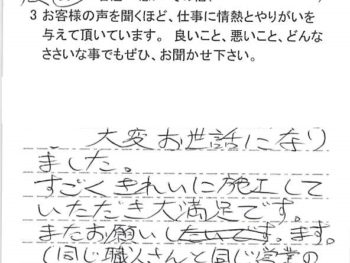 3 お客様の声を聞くほど、仕事に情熱とやりがいを
与えて頂いています。良いこと、悪いこと、どんな
ささいな事でもぜひ、お聞かせ下さい。
大変お世話になり
ました。
すごくきれいに施工して
いただき大満足です。
またお願いしたいです。ます。
(同じ職人さんと同じ営業の